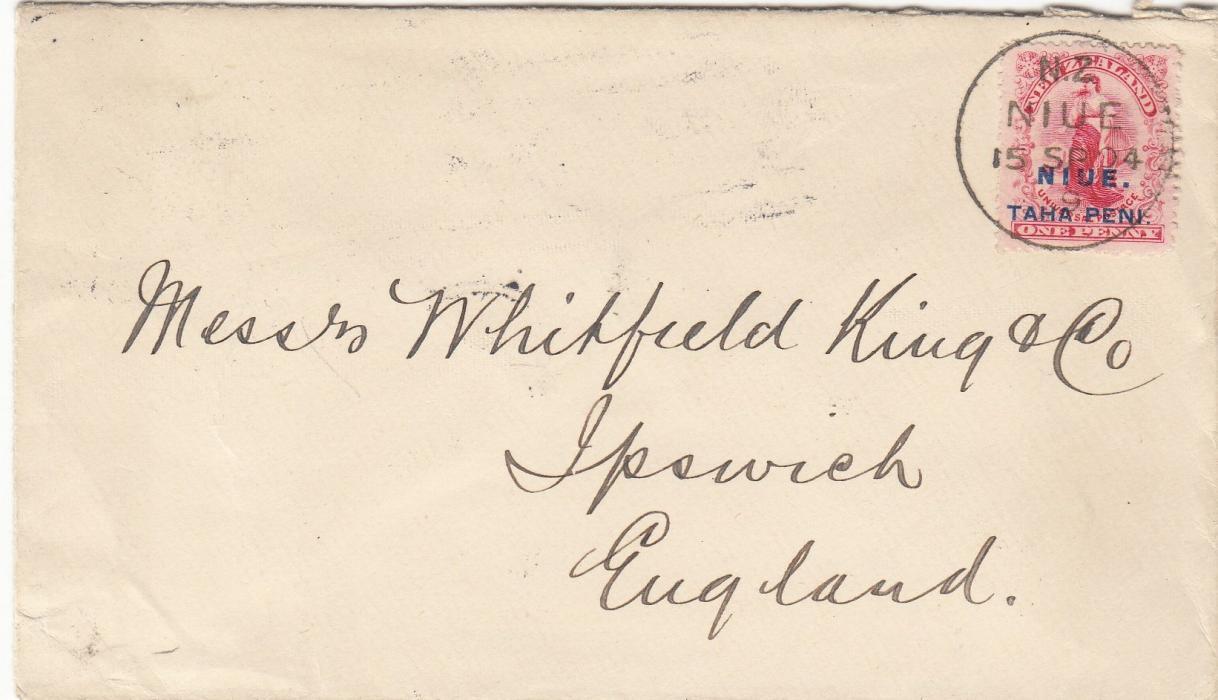 N.Z
NEW ZEALAND
NIUE
15 SP 04
NIUE.
9
TAHA PENI.
ONE PENNY
Messrs Whitfield King & Co
Ipswich
England.